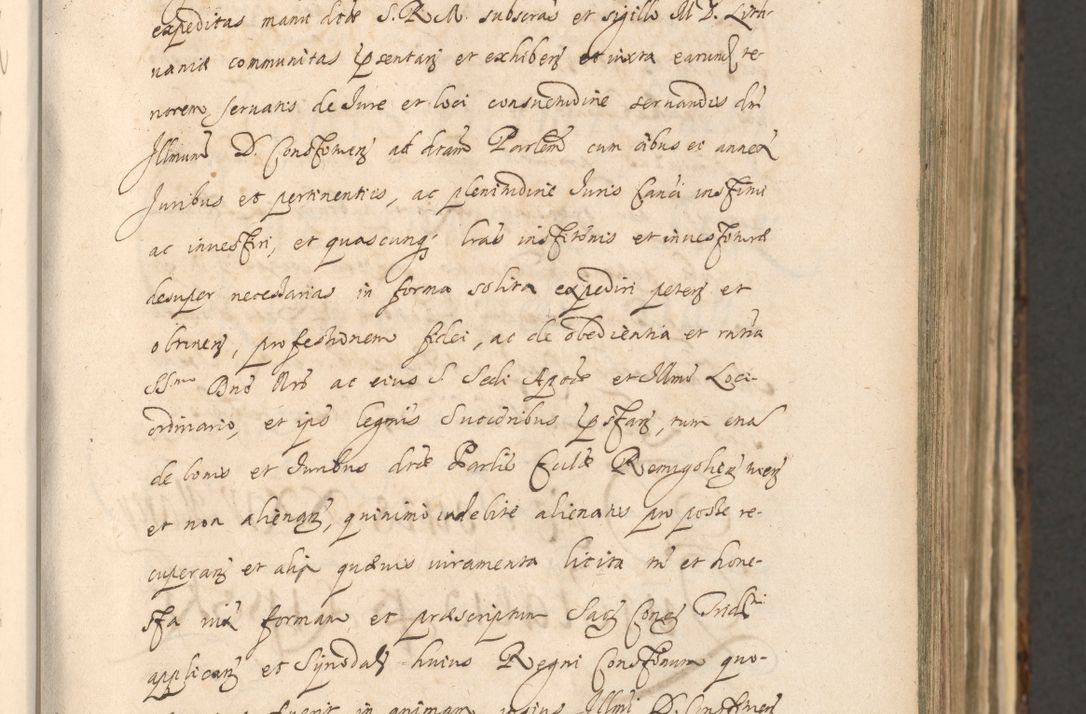 expeditas manu dtae S. R. M. subscras et sigillo M. D. Lith-
uaniae communitas praesentanz et exhibenz et iuxta earundz te-
norem, servatis de Jure et loci consuetudine servandis dm
Illmum D. Constituenz ad dtam Parlem cum oibus et annex
Juribus et pertinentiis, ac plenitudine Juris Canci institui
ac investiri, et quascunq lras institonis et investiturae
desuper necessarias in forma solita expediri petenz et
obtinenz, professionem fidei, ac de obedientia et
SSmo Dno Nro ac eius S. Sedi Aplicae et Illmo Loci
ordinario, et ipis legmis Successoribus pstanz, tum
de bonis et Juribus dtae Parlis Ecclae Remigolien
et non alienanz, quinimo indebite alienatis pro posse re-
cuperanz et alia quaevis iuramenta licita tn et hone-
sta iuxa formam et praescriptum Sacz Concz Tridni
applicanz et Synodalz huius Regni Constitonum quo-
fuerit in animam ipsius Illmi D. Constituen